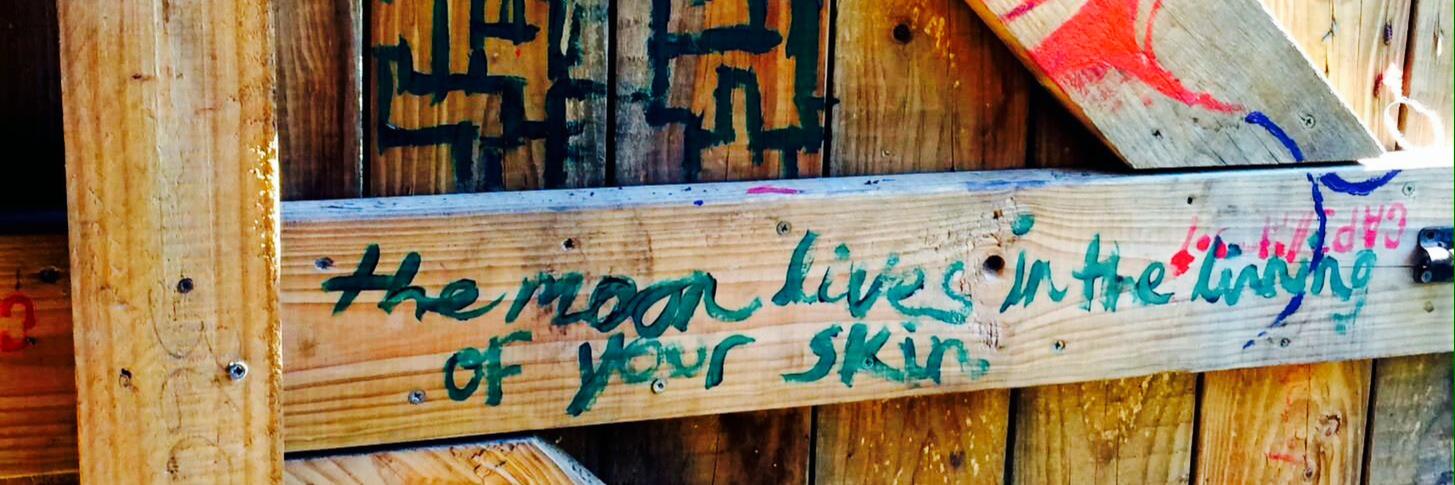 the moon lives in the linning
of your skin